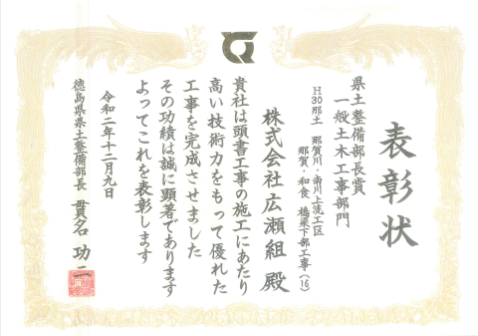 表彰状
県土整備部長賞
一般土木工事部門
H30那土 那賀川・南川上流工区
那賀・和食 橋梁下部工事(16)
株式会社広瀬組 殿
貴社は頭書工事の施工にあたり
高い技術力をもって優れた
工事を完成させました
その功績は誠に顕著であります
よってこれを表彰します
令和二年十二月九日
徳島県県土整備部長 貫名 功二